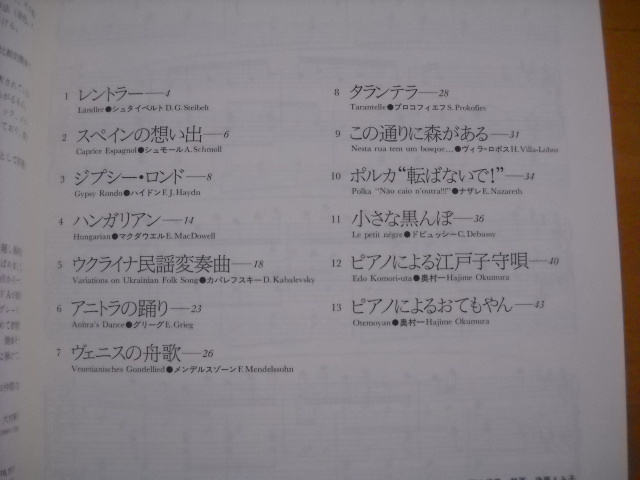 1 レントラー—4
Ländler●シュタイベルト D.G. Steibelt
2 スペインの想い出—6
Caprice Espagnol●シュモール A. Schmoll
3 ジプシー・ロンド—8
Gypsy Rondo●ハイドン F. J. Haydn
4 ハンガリアン—14
Hungarian●マクダウエル E. MacDowell
5 ウクライナ民謡変奏曲—18
Variations on Ukrainian Folk Song●カバレフスキー D. Kabalevsky
6 アニトラの踊り—23
Anitra's Dance●グリーグ E. Grieg
7 ヴェニスの舟歌—26
Venetianisches Gondellied●メンデルスゾーン F. Mendelssohn
8 タランテラ—28
Tarantelle●プロコフィエフ S. Prokofiev
9 この通りに森がある—31
Nesta rua tem um bosque...●ヴィラ=ロボス H. Villa-Lobos
10 ポルカ“転ばないで!”—34
Polka “Não caio n'outra!!!”●ナザレ E. Nazareth
11 小さな黒んぼ—36
Le petit nègre●ドビュッシー C. Debussy
12 ピアノによる江戸子守唄—40
Edo Komori-uta●奥村一 Hajime Okumura
13 ピアノによるおてもやん—43
Otemoyan●奥村一 Hajime Okumura